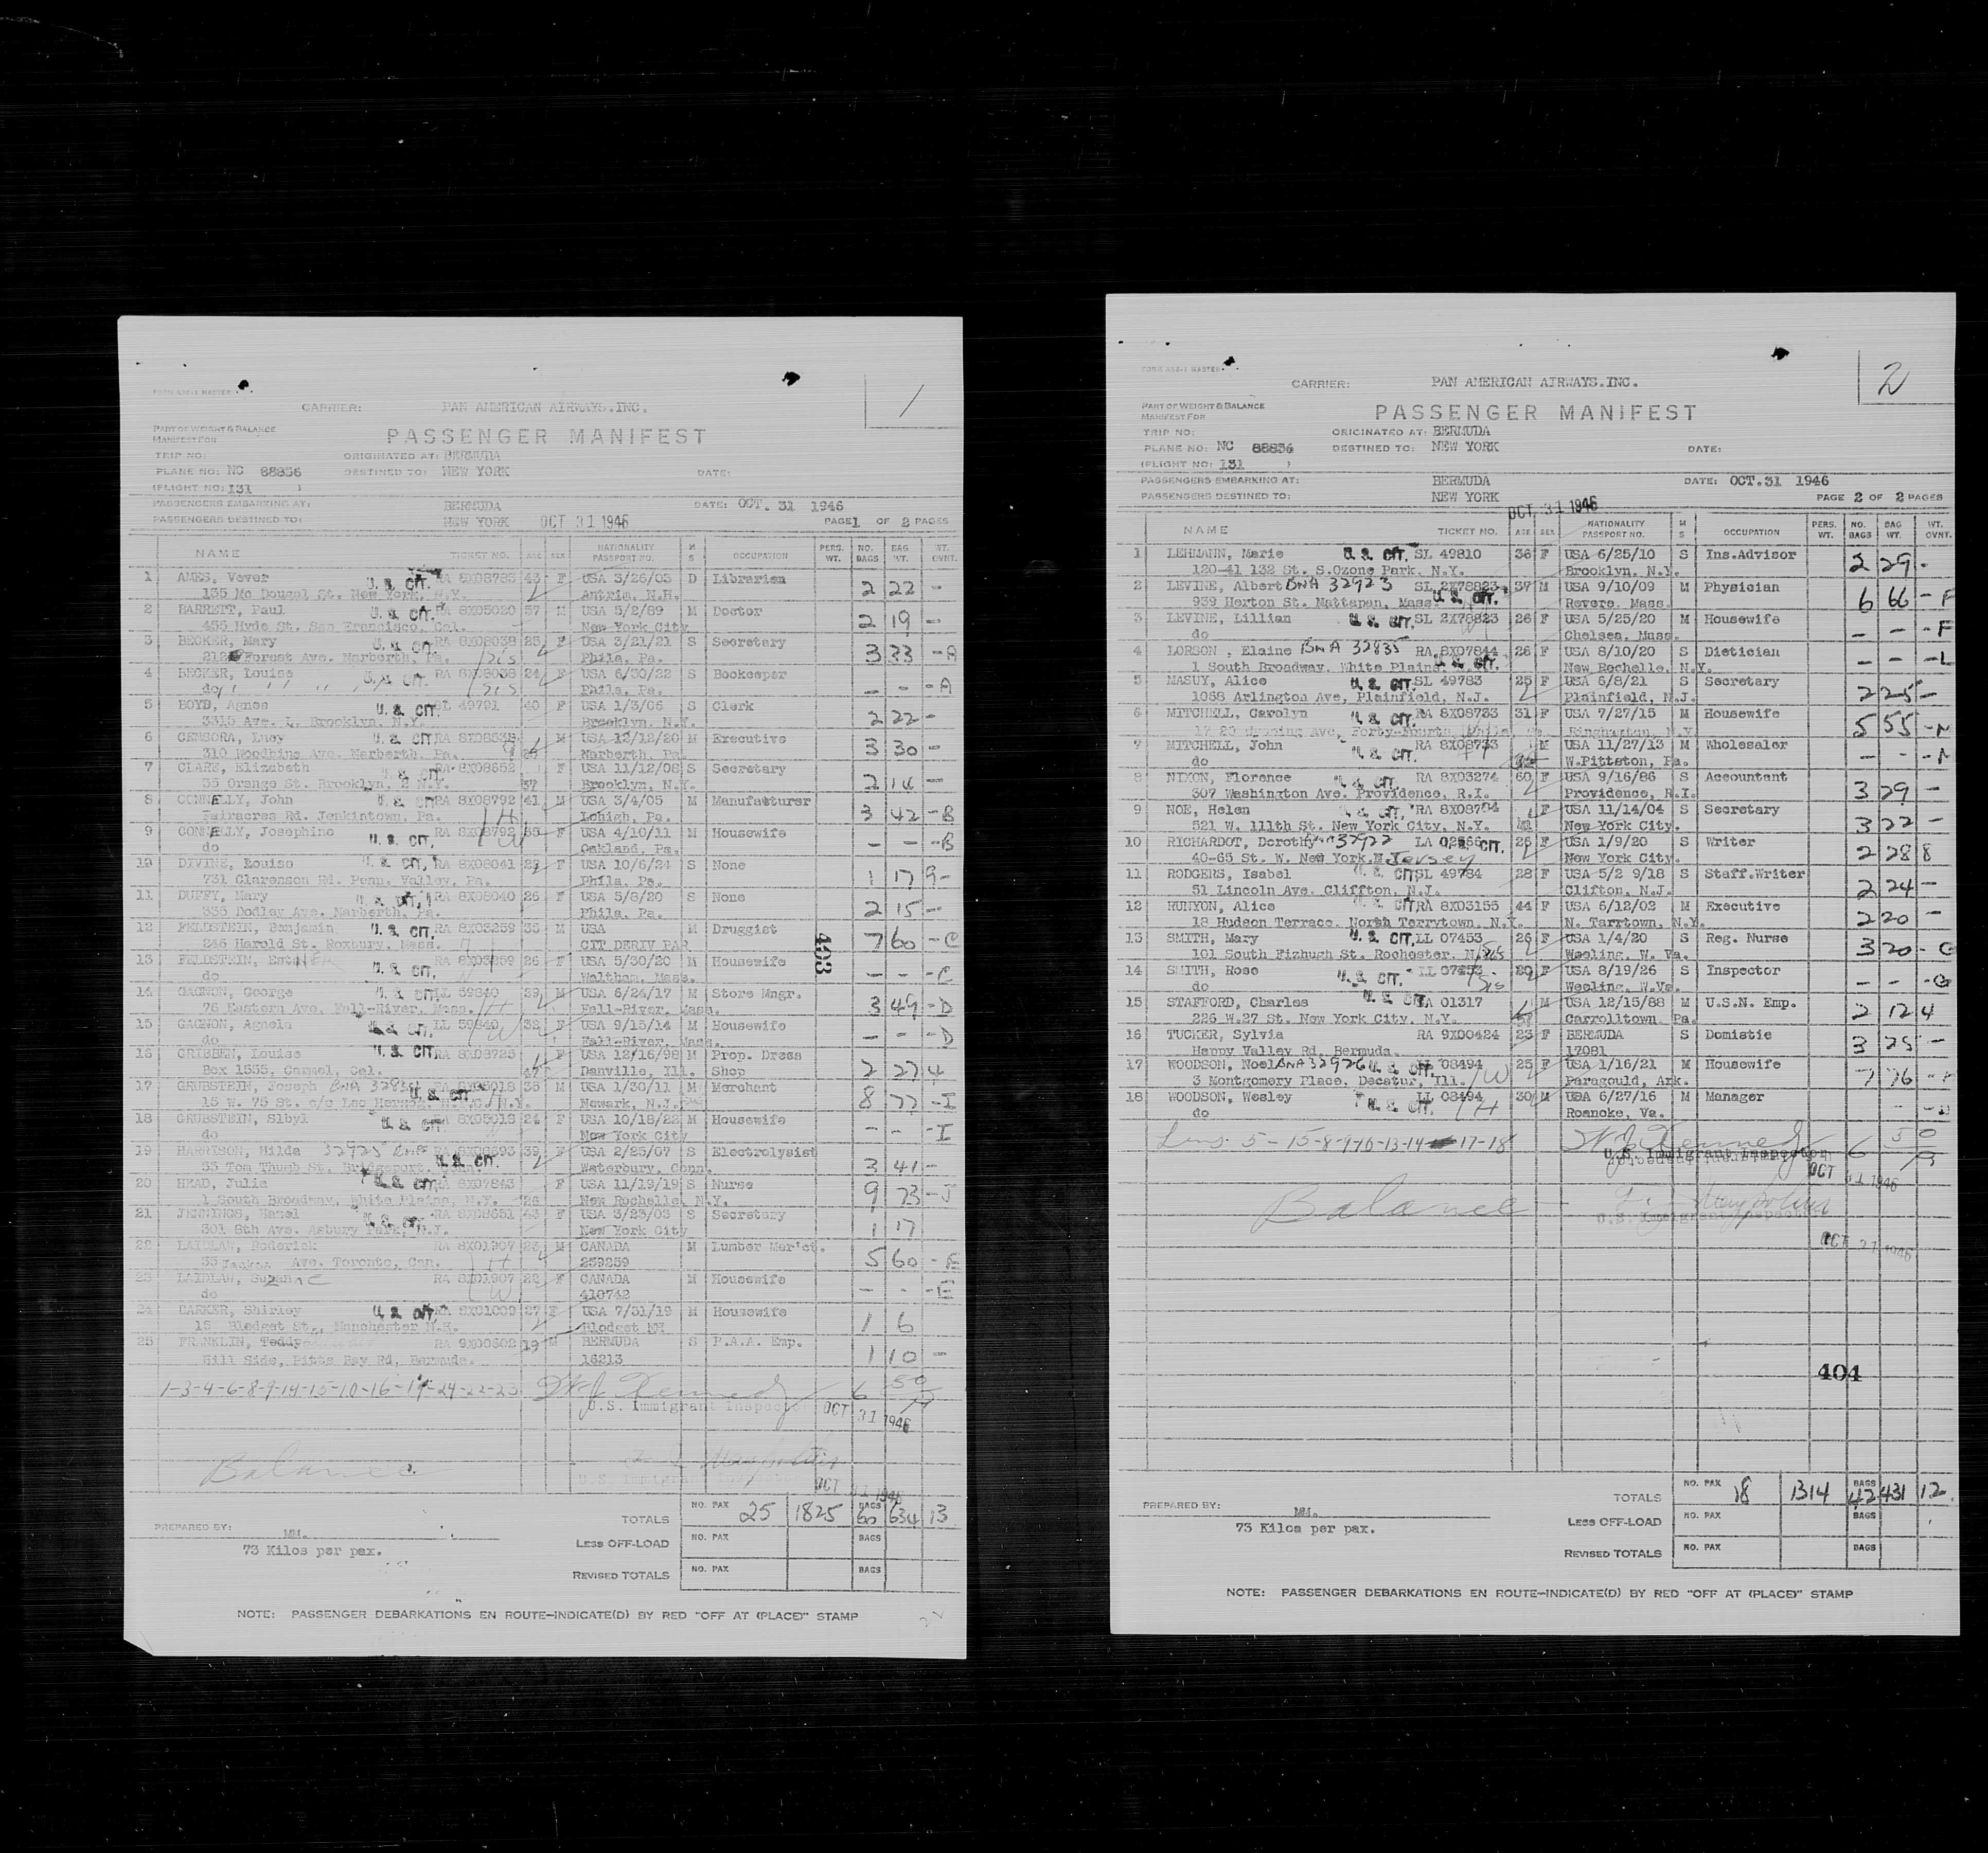 FORM ASS-1 MASTER
1
CARRIER: PAN AMERICAN AIRWAYS.INC.
PART OF WEIGHT & BALANCE
MANIFEST FOR
PASSENGER MANIFEST
TRIP NO: ORIGINATED AT: BERMUDA
PLANE NO: NC 88836 DESTINED TO: NEW YORK DATE:
(FLIGHT NO: 131 )
PASSENGERS EMBARKING AT: BERMUDA DATE: OCT. 31 1946
PASSENGERS DESTINED TO: NEW YORK OCT 31 1946 PAGE 1 OF 2 PAGES
NAME TICKET NO. AGE SEX NATIONALITY PASSPORT NO. M S OCCUPATION PERS. WT. NO. BAGS BAG WT. WT. OVNT.
1 AMES, Vever U. S. CIT. RA 8X08785 43 F USA 3/26/03 D Librarian 2 22 -
135 Mc Dougal St. New York, N.Y. Antrim, N.H.
2 BARRETT, Paul U. S. CIT. RA 8X05020 57 M USA 5/2/89 M Doctor 2 19 -
455 Hyde St. San Francisco, Cal. New York City
3 BECKER, Mary U. S. CIT. RA 8X08038 25 F USA 3/21/21 S Secretary 3 33 - A
212 Forest Ave. Narberth, Pa. Sis Phila. Pa.
4 BECKER, Louise U. S. CIT. RA 8X08038 24 F USA 6/30/22 S Bookeeper - - - A
do Sis Phila. Pa.
5 BOYD, Agnes U. S. CIT. SL 49791 40 F USA 1/3/06 S Clerk 2 22 -
3315 Ave. L. Brooklyn, N.Y. Brooklyn, N.Y.
6 U. S. CIT. M USA 12/12/20 M Executive 3 30 -
310 Woodbine Ave. Narberth, Pa. Narberth, Pa.
7 CLARE, Elizabeth U. S. CIT. RA 8X08652 37 F USA 11/12/08 S Secretary 2 14 -
35 Orange St. Brooklyn, 2 N.Y. Brooklyn, N.Y.
8 CONNELLY, John U. S. CIT. RA 8X08792 41 M USA 3/4/05 M Manufacturer 3 42 - B
Fairacres Rd. Jenkintown, Pa. H Lehigh, Pa.
9 CONNELLY, Josephine U. S. CIT. RA 8X08792 35 F USA 4/10/11 M Housewife - - - B
do W Oakland, Pa.
10 DIVINE, Louise U. S. CIT. RA 8X08041 F USA 10/6/24 S None 1 17 9-
731 Clarenson Rd. Penn. Valley, Pa. Phila. Pa.
11 DUFFY, Mary U. S. CIT. RA 8X08040 26 F USA 5/8/20 S None 2 15 -
335 Dudley Ave. Narberth, Pa. Phila. Pa.
12 FELDSTEIN, Benjamin U. S. CIT. RA 8X03259 35 M USA M Druggist 7 60 - C
246 Harold St. Roxbury, Mass. H CIT DERIV PAR
403
13 FELDSTEIN, EstHER U. S. CIT. RA 8X03259 26 F USA 5/30/20 M Housewife - - - C
do W Waltham, Mass.
14 GAGNON, George U. S. CIT. LL 59840 29 M USA 6/24/17 M Store Mngr. 3 49 - D
76 Eastern Ave. Fall-River, Mass. H Fall-River, Mass.
15 GAGNON, Agnela U. S. CIT. LL 59840 32 F USA 9/15/14 M Housewife - - - D
do W Fall-River, Mass.
16 GRIBBEN, Louise U. S. CIT. RA 8X08725 47 F USA 12/16/98 M Prop. Dress 2 27 4
Box 1555, Carmel, Cal. Danville, Ill. Shop
17 GRUBSTEIN, Joseph BMA U. S. CIT. RA 8X05018 35 M USA 1/30/11 M Merchant 8 77 - I
15 W. 75 St. Newark, N.J.
18 GRUBSTEIN, Sibyl U. S. CIT. RA 8X05018 24 F USA 10/18/22 M Housewife - - - I
do New York City
19 HARRISON, Hilda 32925 BMA U. S. CIT. RA 39 F USA 2/25/07 S Electrolysist 3 41 -
35 Tom Thumb St. Bridgeport, Conn. Waterbury, Conn.
20 HEAD, Julia U. S. CIT. RA 8X07843 26 F USA 11/19/19 S Nurse 9 73 - J
1 South Broadway, White Plains, N.Y. New Rochelle, N.Y.
21 JENNINGS, Hazel U. S. CIT. RA 8X08651 43 F USA 3/25/03 S Secretary 1 17
301 8th Ave. Asbury Park, N.J. New York City
22 LAIDLAW, Roderick RA 8X01907 M CANADA M Lumber Mer'ct. 5 60 - E
35 Ave. Toronto, Can. H 259259
23 LAIDLAW, Suzanne RA 8X01907 22 F CANADA M Housewife - - - E
do W 410742
24 BARKER, Shirley U. S. CIT. RA 8X01009 27 F USA 7/31/19 M Housewife 1 6
15 Blodget St., Manchester N.H. Blodget NH
25 FRANKLIN, Teddy RA 9X00602 19 M BERMUDA S P.A.A. Emp. 1 10 -
Gill Side, Pitts Bay Rd, Bermuda. 16213
1-3-4-6-8-9-14-15-10-16-19-24-22-23 W J Kennedy 6 50
U.S. Immigrant Inspector OCT 31 1946
Balance
U.S. Immigrant Inspector OCT 31 1946
TOTALS NO. PAX 25 1825 BAGS 60 634 13
PREPARED BY: MM. LESS OFF-LOAD NO. PAX BAGS
73 Kilos per pax.
REVISED TOTALS NO. PAX BAGS
NOTE: PASSENGER DEBARKATIONS EN ROUTE-INDICATE(D) BY RED "OFF AT (PLACE)" STAMP
FORM ASS-1 MASTER
2
CARRIER: PAN AMERICAN AIRWAYS.INC.
PART OF WEIGHT & BALANCE
MANIFEST FOR
PASSENGER MANIFEST
TRIP NO: ORIGINATED AT: BERMUDA
PLANE NO: NC 88836 DESTINED TO: NEW YORK DATE:
(FLIGHT NO: 131 )
PASSENGERS EMBARKING AT: BERMUDA DATE: OCT.31 1946
PASSENGERS DESTINED TO: NEW YORK PAGE 2 OF 2 PAGES
OCT 31 1946
NAME TICKET NO. AGE SEX NATIONALITY PASSPORT NO. M S OCCUPATION PERS. WT. NO. BAGS BAG WT. WT. OVNT.
1 LEHMANN, Marie U. S. CIT. SL 49810 36 F USA 6/25/10 S Ins.Advisor 2 29 -
120-41 132 St. S.Ozone Park, N.Y. Brooklyn, N.Y.
2 LEVINE, Albert BMA 32923 SL 2X78823 37 M USA 9/10/09 M Physician 6 66 - F
939 Horton St. Mattapan, Mass. U. S. CIT. Revere, Mass.
3 LEVINE, Lillian U. S. CIT. SL 2X78823 26 F USA 5/25/20 M Housewife - - - F
do W Chelsea, Mass.
4 LORSON , Elaine BMA 32835 RA 8X07844 26 F USA 8/10/20 S Dietician - - - L
1 South Broadway, White Plains U. S. CIT. New Rochelle, N.Y.
5 MASUY, Alice U. S. CIT. SL 49783 25 F USA 6/8/21 S Secretary 2 25 -
1068 Arlington Ave, Plainfield, N.J. Plainfield, N.J.
6 MITCHELL, Carolyn U. S. CIT. RA 8X08733 31 F USA 7/27/15 M Housewife 5 55 - N
Ave, Forty-Fourth Binghamton, N.Y.
7 MITCHELL, John U. S. CIT. RA 8X08733 M USA 11/27/13 M Wholesaler - - - N
do H W.Pittston, Pa.
8 NIXON, Florence U. S. CIT. RA 8X03274 60 F USA 9/16/86 S Accountant 3 29 -
307 Washington Ave. Providence, R.I. Providence, R.I.
9 NOE, Helen U. S. CIT. RA 8X08704 41 F USA 11/14/04 S Secretary 3 22 -
521 W. 111th St. New York City, N.Y. New York City.
10 RICHARDOT, Dorothy 32922 LA 02566 U. S. CIT. 26 F USA 1/9/20 S Writer 2 28 8
40-65 St. W. New York,N.Jersey New York City.
11 RODGERS, Isabel U. S. CIT. SL 49784 28 F USA 5/2 9/18 S Staff.Writer 2 24 -
51 Lincoln Ave. Cliffton, N.J. Clifton, N.J.
12 RUNYON, Alice U. S. CIT. RA 8X03155 44 F USA 6/12/02 M Executive 2 20 -
18 Hudson Terrace, North Terrytown, N.Y. N. Tarrtown, N.Y.
13 SMITH, Mary U. S. CIT. LL 07453 26 F USA 1/4/20 S Reg. Nurse 3 20 - G
101 South Fizhugh St. Rochester, N.Y. Sis Weeling, W. Va.
14 SMITH, Rose U. S. CIT. LL 07453 20 F USA 8/19/26 S Inspector - - - G
do Sis Weeling, W.Va.
15 STAFFORD, Charles U. S. CIT. RA 01317 57 M USA 12/15/88 M U.S.N. Emp. 2 12 4
226 W.27 St. New York City, N.Y. Carrolltown, Pa.
16 TUCKER, Sylvia RA 9X00424 23 F BERMUDA S Domistic 3 25 -
Happy Valley Rd, Bermuda. 17081
17 WOODSON, Noel BMA 32926 U. S. CIT. LL 08494 25 F USA 1/16/21 M Housewife 7 76
3 Montgomery Place, Decatur, Ill. W Paragould, Ark.
18 WOODSON, Wesley U. S. CIT. LL 08494 30 M USA 6/27/16 M Manager
do H Roanoke, Va.
Lines 5-15-8-9-10-13-14 17-18 W J Kennedy 6 50
U.S. Immigrant Inspector
OCT 31 1946
Balance
U.S. Immigrant Inspector
OCT 31 1946
404
TOTALS NO. PAX 18 1314 BAGS 42 431 12
PREPARED BY: MM. LESS OFF-LOAD NO. PAX BAGS
73 Kilos per pax.
REVISED TOTALS NO. PAX BAGS
NOTE: PASSENGER DEBARKATIONS EN ROUTE-INDICATE(D) BY RED "OFF AT (PLACE)" STAMP